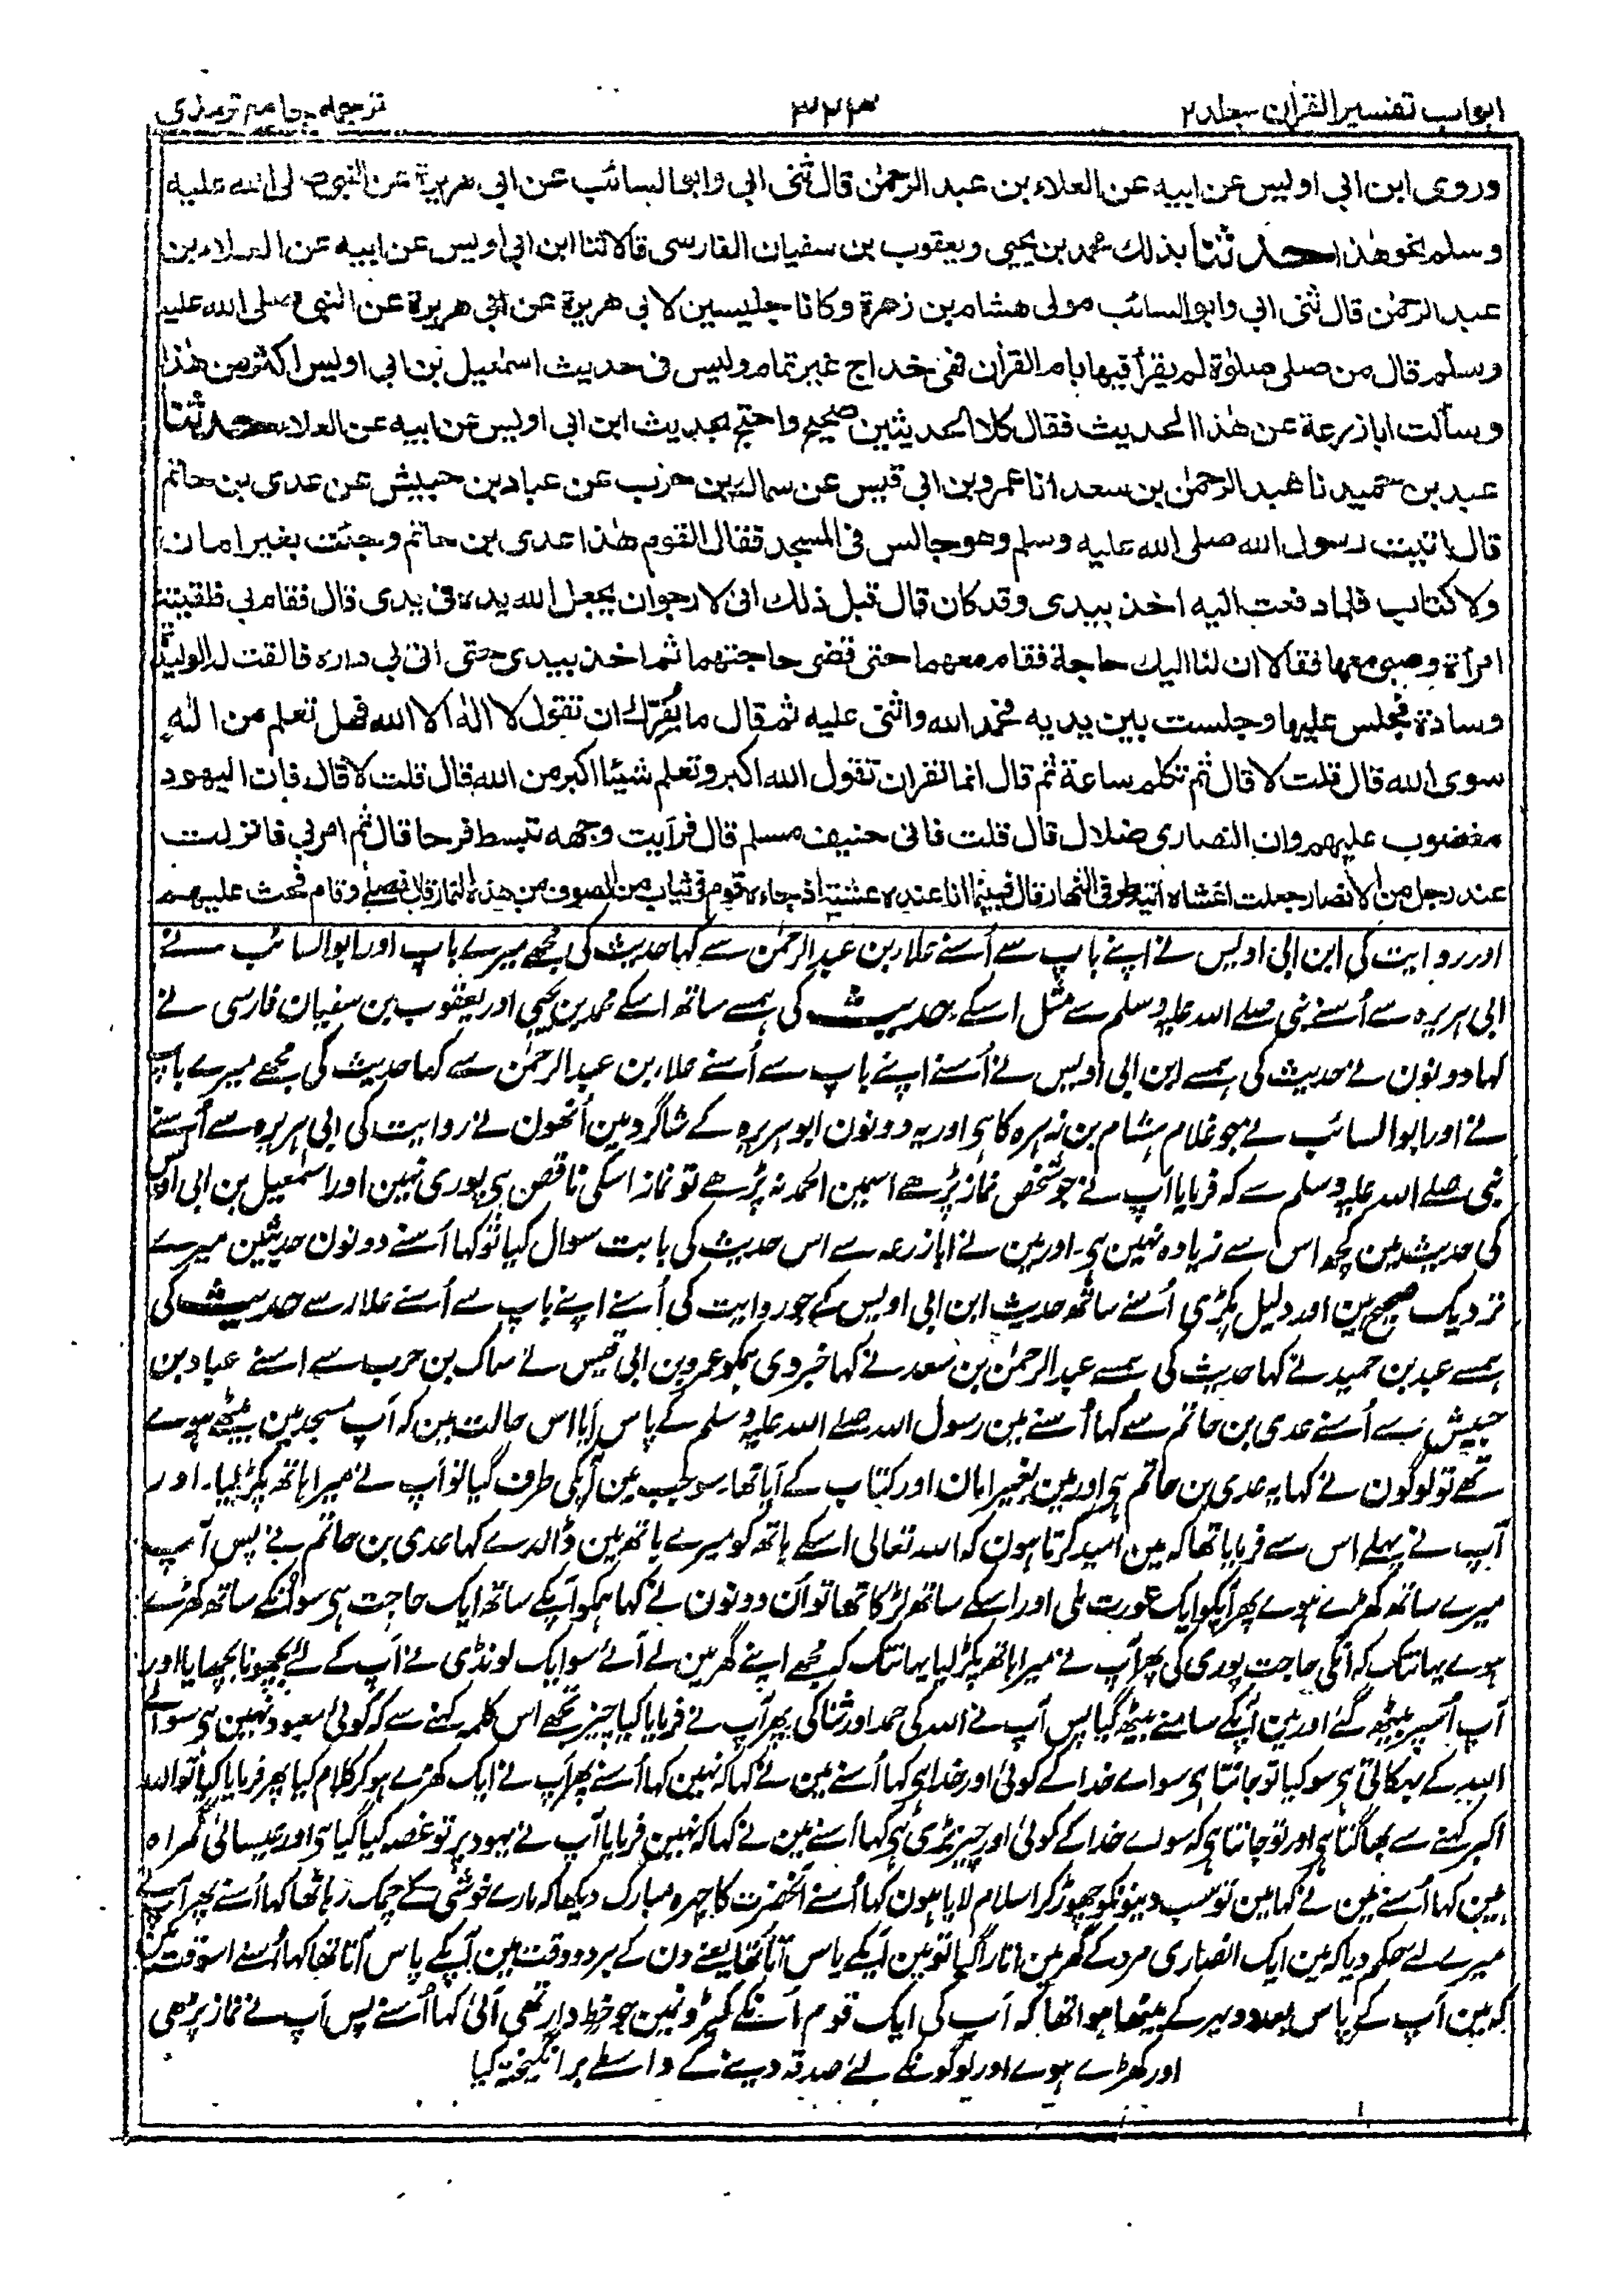 ابواب تفسیر القران جلد ۲
۳۲۳
ترجمه جامع ترمذی
وروى ابن ابي اوليس عن ابيه عن العلاء بن عبد الرحمٰن قال ثنى ابي وابو السائب عن ابي هريرة عن النبي صلى الله عليه
وسلم نحو هٰذا حدثنا بذلك محمد بن يحيى ويعقوب بن سفيان الفارسى قالا ثنا ابن ابي اويس عن ابيه عن العلاء بن
عبد الرحمٰن قال ثنى ابي وابو السائب مولى هشام بن زهرة وكانا جليسين لابي هريرة عن ابي هريرة عن النبي صلى الله عليه
وسلم قال من صلى صلوٰة لم يقرأ فيها بام القراٰن فهى خداج غير تمام وليس فى حديث اسمٰعيل بن ابي اويس اكثر من هٰذا
وسألت ابا زرعة عن هٰذا الحديث فقال كلا الحديثين صحيح واحتج بحديث ابن ابي اوليس عن ابيه عن العلاء حدثنا
عبد بن حميد نا عبد الرحمٰن بن سعد انا عمرو بن ابي قيس عن سماك بن حرب عن عباد بن حبيش عن عدى بن حاتم
قال اتيت رسول الله صلى الله عليه وسلم وهو جالس فى المسجد فقال القوم هٰذا عدى بن حاتم وجئت بغير امان
ولا كتاب فلما دفعت اليه اخذ بيدى وقد كان قال قبل ذلك انى لارجو ان يجعل الله يده فى يدى قال فقام بى فلقيته
امرأة وصبى معها فقالا ان لنا اليك حاجة فقام معهما حتى قضى حاجتهما ثم اخذ بيدى حتى اتى بى داره فالقت له الوليدة
وسادة فجلس عليها وجلست بين يديه فحمد الله واثنى عليه ثم قال ما يُفِرُّك ان تقول لا الٰه الا الله فهل تعلم من الٰهٍ
سوى الله قال قلت لا قال ثم تكلم ساعة ثم قال انما تفر ان تقول الله اكبر وتعلم شيئا اكبر من الله قال قلت لا قال فان اليهود
مغضوب عليهم وان النصارى ضلال قال قلت فانى حنيف مسلم قال فرأيت وجهه تبسط فرحا قال ثم امر بى فانزلت
عند رجل من الانصار جعلت اغشاه اتيه طرفى النهار قال فبينما انا عنده عشية اذ جاءه قوم فى ثياب من الصوف من هذه النمار قال فصلى وقام فحث عليهم
اور روایت کی ابن ابی اویس نے اپنے باپ سے اُسنے علاء بن عبد الرحمٰن سے کہا حدیث کی مجھے میرے باپ اور ابو السائب نے
ابی ہریرہ سے اُسنے نبی صلے اللہ علیہ وسلم سے مثل اسکے حدیث کی ہمسے ساتھ اسکے محمد بن یحیی اور یعقوب بن سفیان فارسی نے
کہا دونون نے حدیث کی ہمسے ابن ابی اویس نے اُسنے اپنے باپ سے اُسنے علاء بن عبد الرحمٰن سے کہا حدیث کی مجھے میرے باپ
نے اور ابو السائب نے جو غلام ہشام بن زہرہ کا ہی اور یہ دونون ابو ہریرہ کے شاگرد ہین اُنھون نے روایت کی ابی ہریرہ سے اُسنے
نبی صلے اللہ علیہ وسلم سے کہ فرمایا آپ نے جو شخص نماز پڑھے اسمین الحمد نہ پڑھے تو نماز اسکی ناقص ہی پوری نہین اور اسمٰعیل بن ابی اویس
کی حدیث مین کچھ اس سے زیادہ نہین ہی۔ اور مین نے ابا زرعہ سے اس حدیث کی بابت سوال کیا تو کہا اُسنے دونون حدیثین میرے
نزدیک صحیح ہین اور دلیل پکڑی اُسنے ساتھ حدیث ابن ابی اویس کے جو روایت کی اُسنے اپنے باپ سے اُسنے علاء سے حدیث کی
ہمسے عبد بن حمید نے کہا حدیث کی ہمسے عبد الرحمٰن بن سعد نے کہا خبر دی ہمکو عمرو بن ابی قیس نے سماک بن حرب سے اسنے عباد بن
حبیش سے اُسنے عدی بن حاتم سے کہا اُسنے مین رسول اللہ صلے اللہ علیہ وسلم کے پاس آیا اس حالت مین کہ آپ مسجد مین بیٹھے ہوے
تھے تو لوگون نے کہا یہ عدی بن حاتم ہی اور مین بغیر امان اور کتاب کے آیا تھا۔ سو جب مین آپکی طرف گیا تو آپ نے میرا ہاتھ پکڑ لیا۔ اور
آپ نے پہلے اس سے فرمایا تھا کہ مین امید کرتا ہون کہ اللہ تعالی اسکے ہاتھ کو میرے ہاتھ مین ڈالدے کہا عدی بن حاتم نے پس آپ
میرے ساتھ کھڑے ہوے پھر آپکو ایک عورت ملی اور اسکے ساتھ لڑکا تھا تو اُن دونون نے کہا ہمکو آپکے ساتھ ایک حاجت ہی سو اُنکے ساتھ کھڑے
ہوے یہانتک کہ اُنکی حاجت پوری کی پھر آپ نے میرا ہاتھ پکڑ لیا یہانتک کہ مجھے اپنے گھر مین لے آئے سو ایک لونڈی نے آپ کے لئے بچھونا بچھایا اور
آپ اُسپر بیٹھ گئے اور مین آپکے سامنے بیٹھ گیا پس آپ نے اللہ کی حمد اور ثنا کی پھر آپ نے فرمایا کیا چیز تجھے اس کلمہ کہنے سے کہ کوئی معبود نہین ہی سوائے
اللہ کے بہکاتی ہی سو کیا تو جانتا ہی سواے خدا کے کوئی اور خدا ہی کہا اُسنے مین نے کہا کہ نہین کہا اُسنے پھر آپ نے ایک کھڑے ہو کر کلام کیا پھر فرمایا کیا تو اللہ
اکبر کہنے سے بھاگتا ہی اور تو جانتا ہی کہ سواے خدا کے کوئی اور چیز بڑی ہی کہا اُسنے مین نے کہا کہ نہین فرمایا آپ نے یہود پر تو غصہ کیا گیا ہی اور عیسائی گمراہ
ہین کہا اُسنے مین نے کہا مین تو سب دینونکو چھوڑ کر اسلام لایا ہون کہا اُسنے آنحضرت کا چہرہ مبارک دیکھا کہ مارے خوشی کے چمک رہا تھا کہا اُسنے پھر آپ نے
میرے لئے حکم دیا کہ مین ایک انصاری مرد کے گھر مین اتارا گیا تو مین آپکے پاس آتا تھا یعنے دن کے ہر دو وقت مین آپکے پاس آتا تھا کہا اُسنے اسوقت مین
کہ مین آپ کے پاس بعد دوپہر کے بیٹھا ہوا تھا کہ آپ کی ایک قوم اُنکے کپڑونمین جو خط دار تھی آئی کہا اُسنے پس آپ نے نماز پڑھی
اور کھڑے ہوے اور لوگونکے لئے صدقہ دینے کے واسطے برانگیختہ کیا